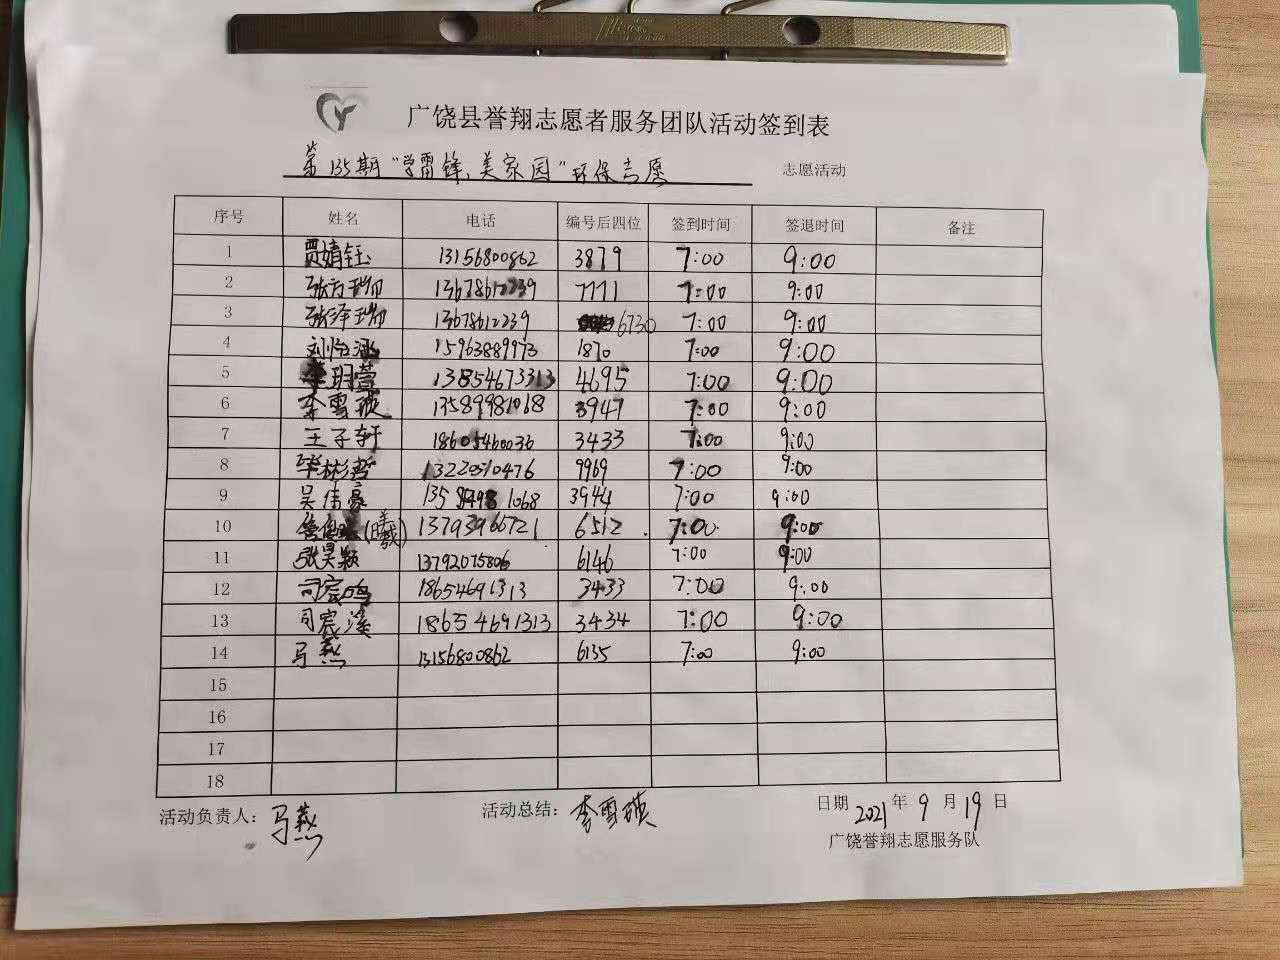 广饶县誉翔志愿者服务团队活动签到表
第135期“学雷锋、美家园”环保志愿 志愿活动
序号 姓名 电话 编号后四位 签到时间 签退时间 备注
1 贾婧钰 13156800862 3879 7:00 9:00
2 13678612239 7771 7:00 9:00
3 张泽瑞 13678612239 6730 7:00 9:00
4 刘怡涵 15963889973 1870 7:00 9:00
5 李玥萱 13854673313 4695 7:00 9:00
6 李雪瑛 13589981068 3947 7:00 9:00
7 王子轩 18605460036 3433 7:00 9:00
8 毕彬哲 13220510476 9969 7:00 9:00
9 吴伟豪 1068 3944 7:00 9:00
10 (曦) 13793966721 6512 7:00 9:00
11 张昊颖 13792075806 6146 7:00 9:00
12 司宸鸣 18654691313 3433 7:00 9:00
13 司宸溪 18654691313 3434 7:00 9:00
14 马燕 13156800862 6135 7:00 9:00
15
16
17
18
活动负责人: 马燕 活动总结: 李雪瑛 日期 2021 年 9 月 19 日
广饶誉翔志愿服务队